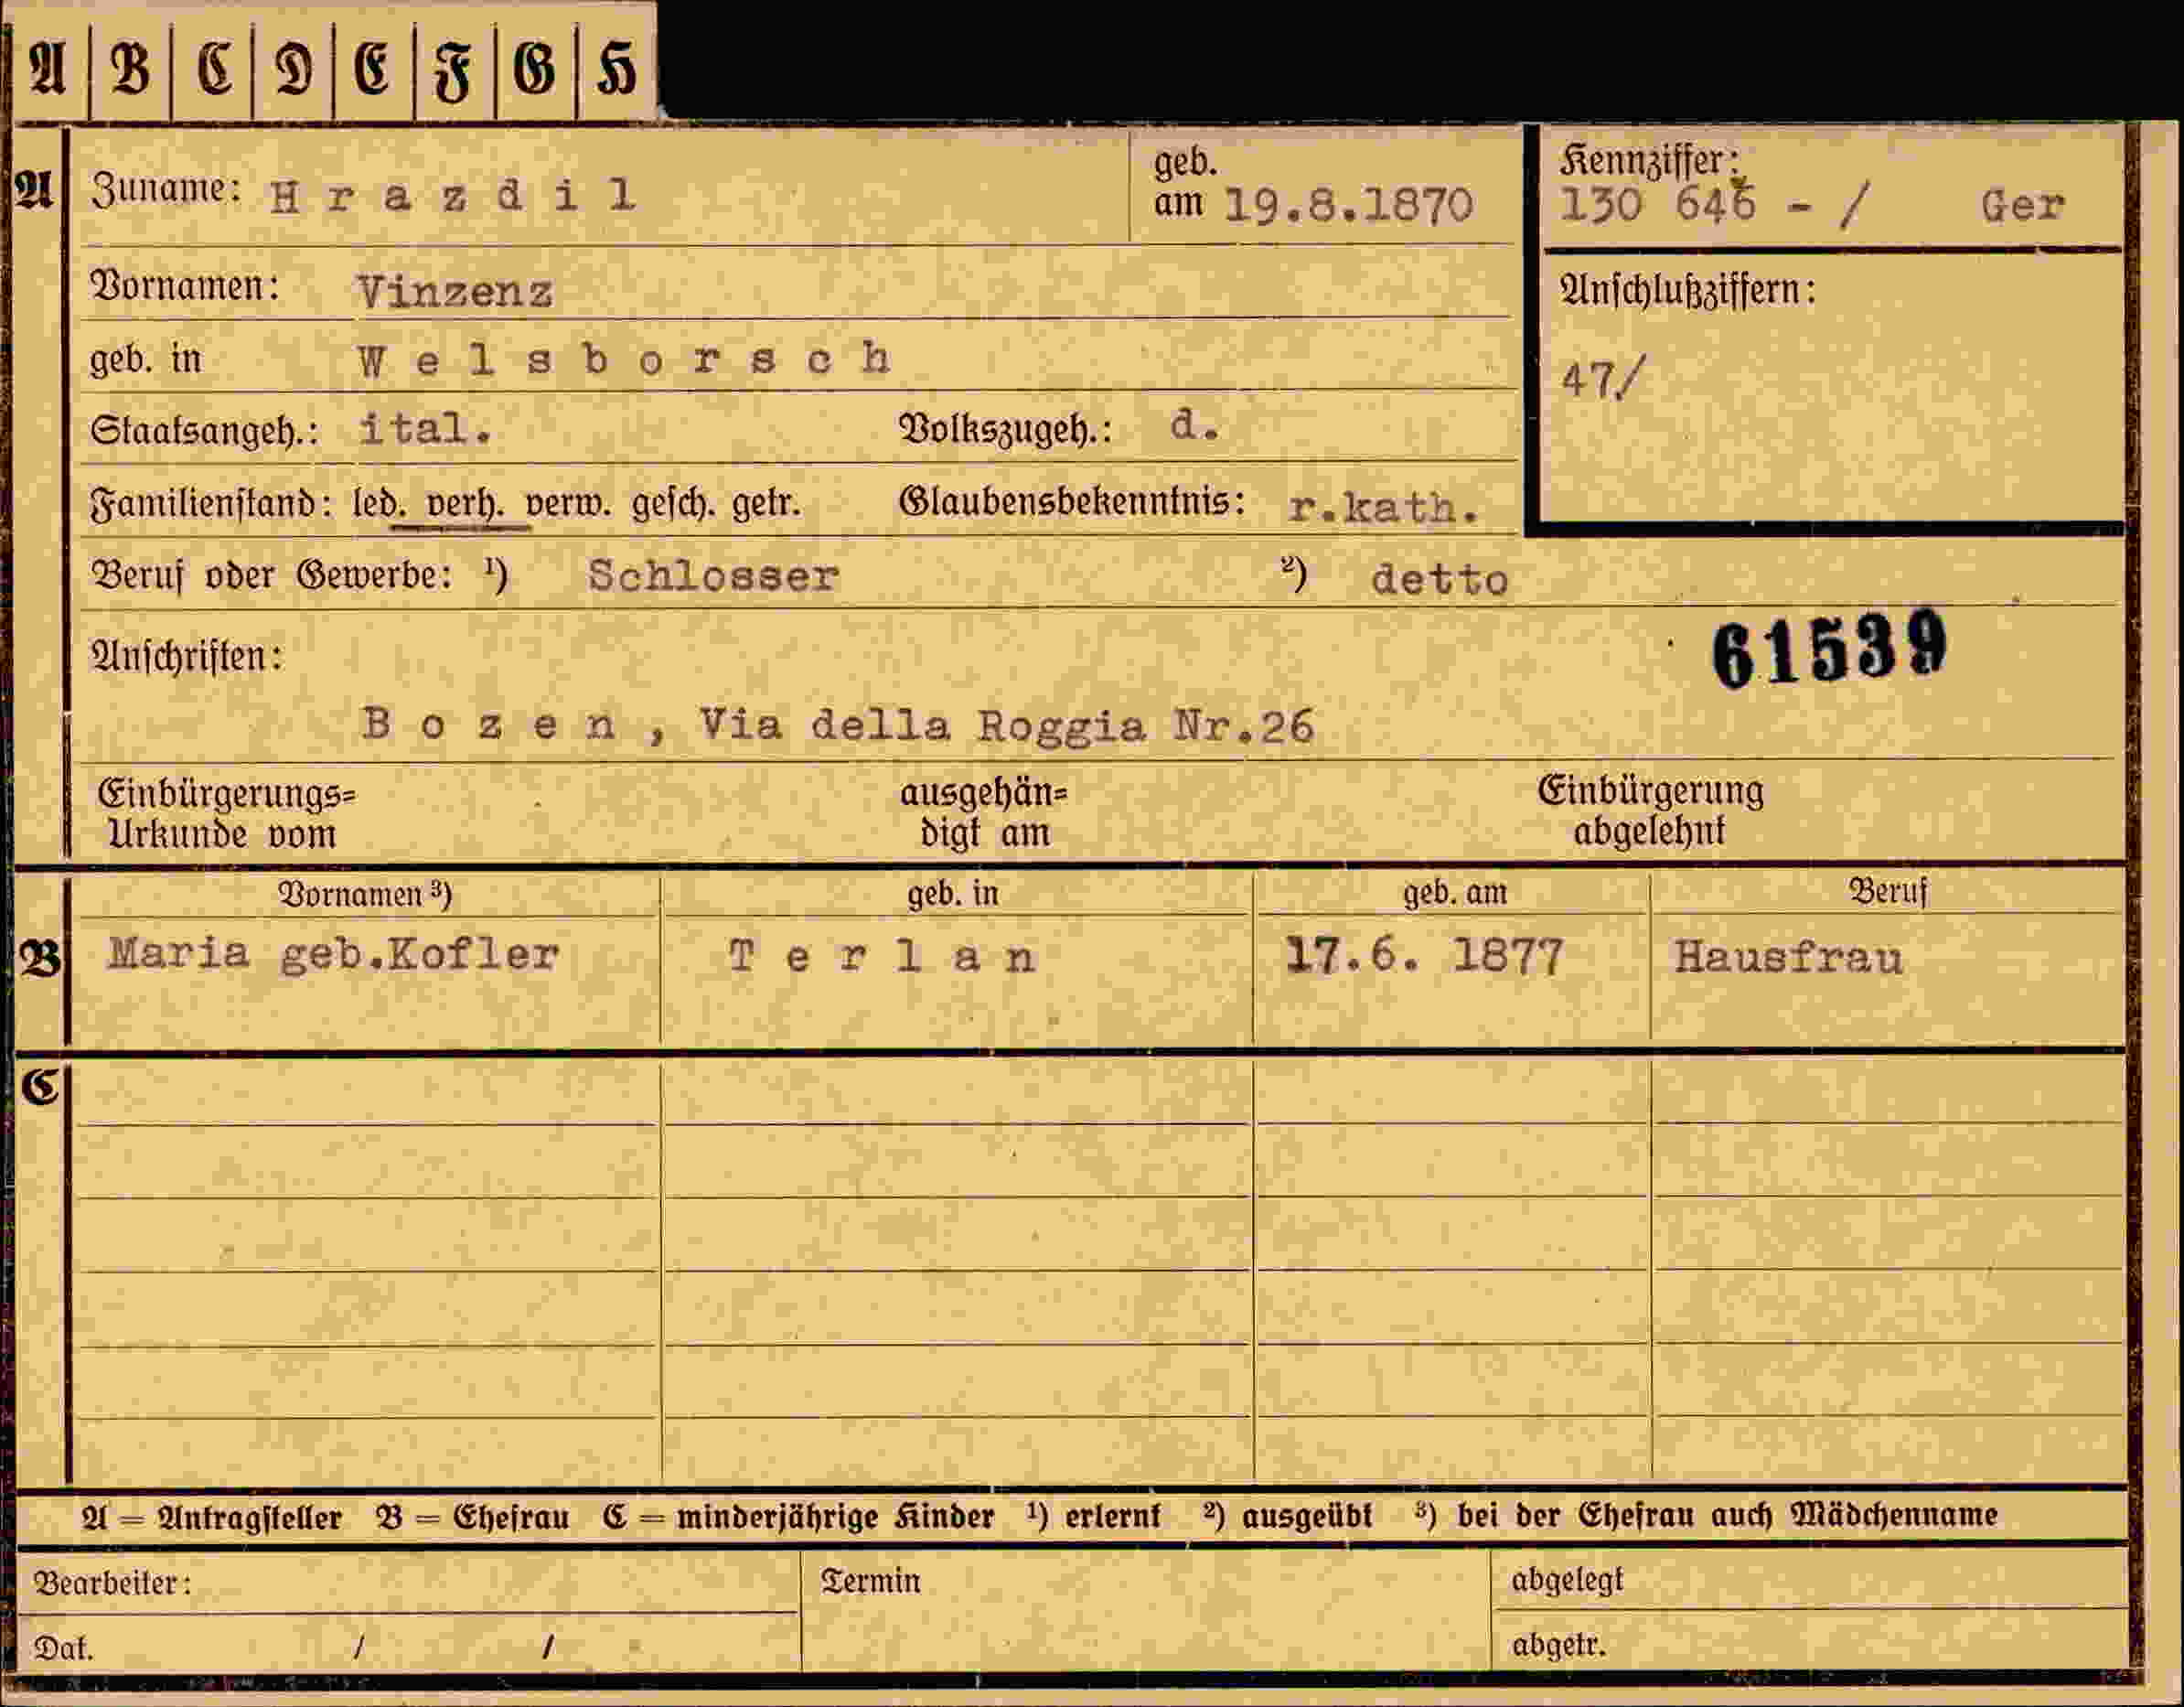 A B C D E F G H
A Zuname: Hrazdil geb. am 19.8.1870 Kennziffer: 130 646 - / Ger
Vornamen: Vinzenz Anschlußziffern:
geb. in Welsborsch 47/
Staatsangeh.: ital. Volkszugeh.: d.
Familienstand: led. verh. verw. gesch. getr. Glaubensbekenntnis: r.kath.
Beruf oder Gewerbe: ¹) Schlosser ²) detto
Anschriften: 61539
Bozen, Via della Roggia Nr.26
Einbürgerungs= ausgehän= Einbürgerung
Urkunde vom digt am abgelehnt
Vornamen ³) geb. in geb. am Beruf
B Maria geb.Kofler Terlan 17.6. 1877 Hausfrau
C
A = Antragsteller B = Ehefrau C = minderjährige Kinder ¹) erlernt ²) ausgeübt ³) bei der Ehefrau auch Mädchenname
Bearbeiter: Termin abgelegt
Dat. / / abgetr.